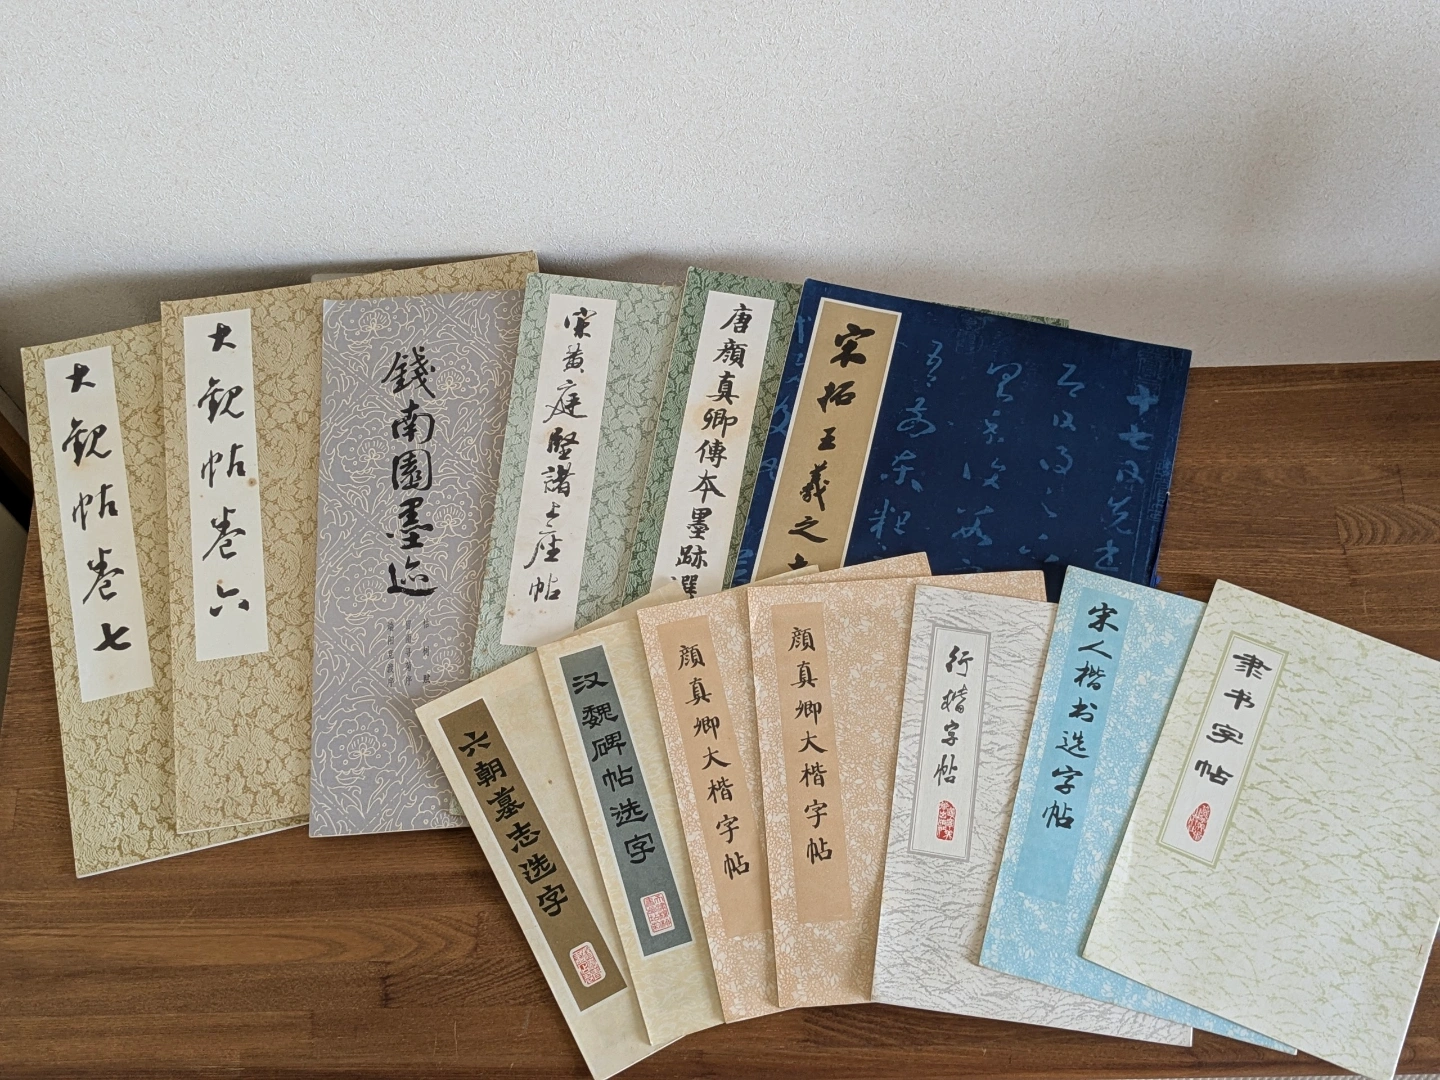 大観帖卷七
大観帖卷六
錢南園墨迹
宋黄庭堅諸上座帖
唐顔真卿傳本墨跡選
宋拓王羲之十
六朝墓志选字
汉魏碑帖选字
顔真卿大楷字帖
顔真卿大楷字帖
行楷字帖
宋人楷书选字帖
隶书字帖